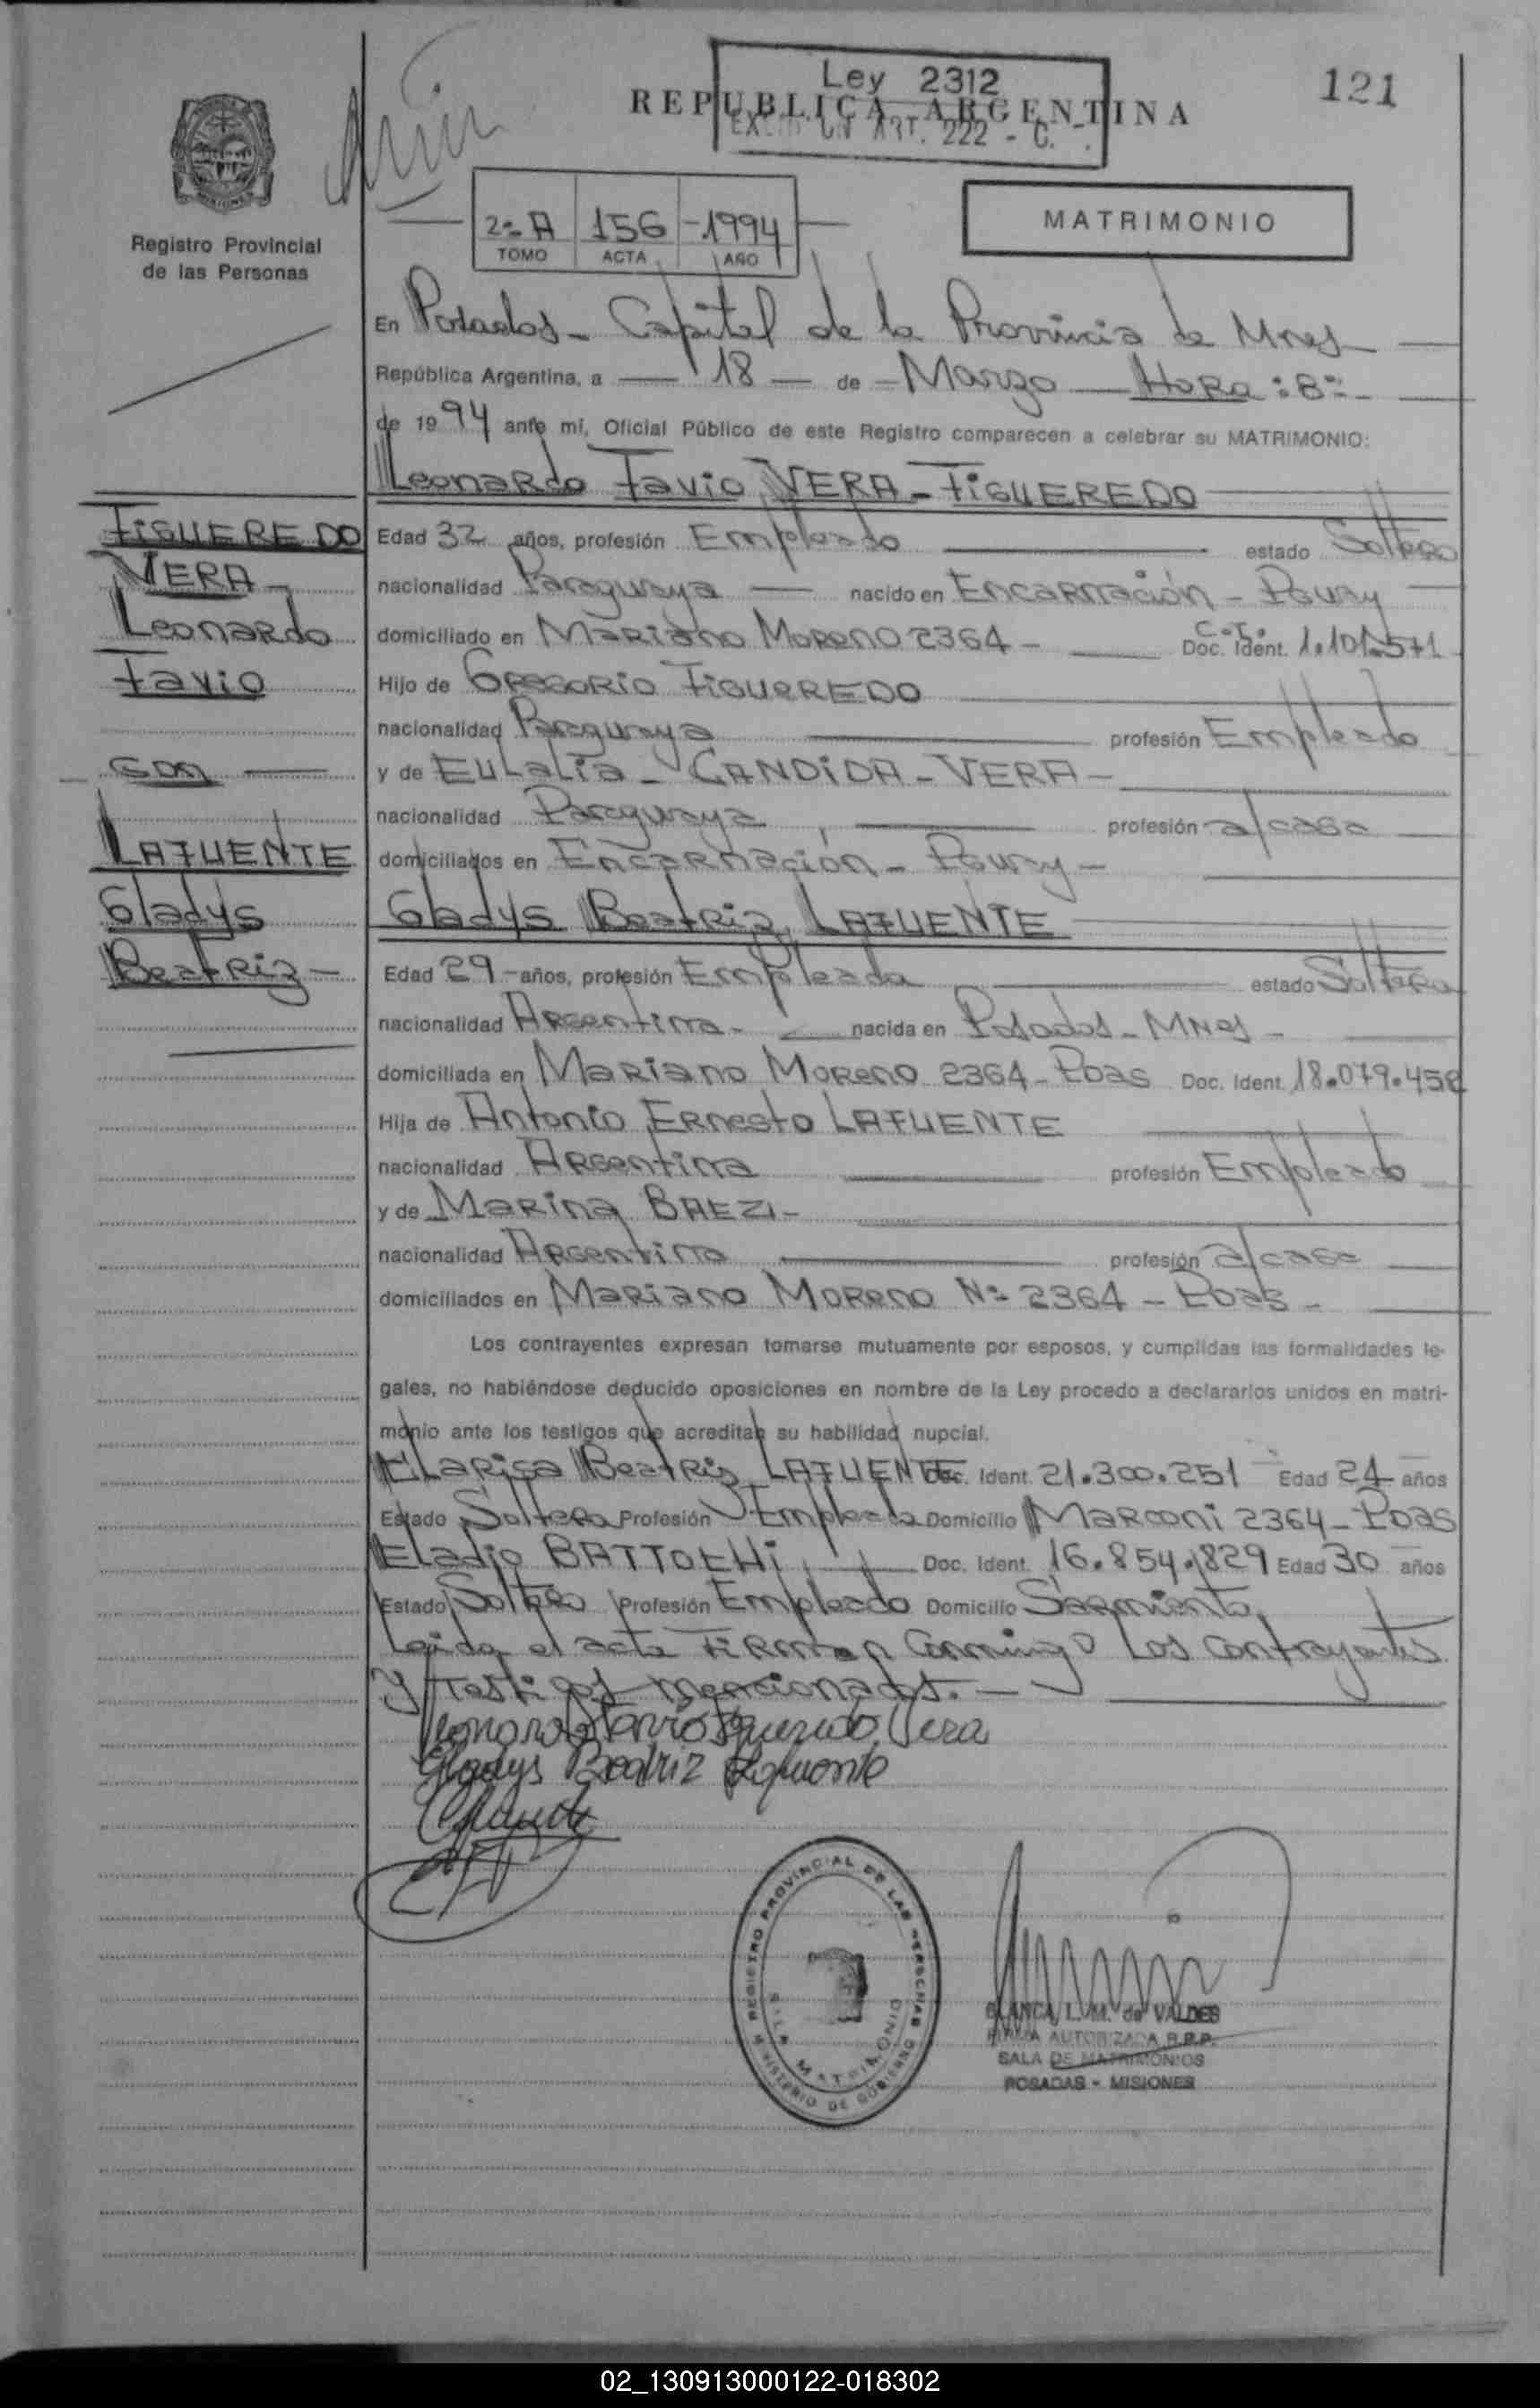 Ley 2312
REPUBLICA ARGENTINA
ART. 222 - C.
121
2º A 156 - 1994
TOMO ACTA AÑO
MATRIMONIO
MISIONES
Registro Provincial
de las Personas
En Posadas - Capital de la Provincia de Mnes
República Argentina, a 18 de Marzo Hora : 8:
de 1994 ante mí, Oficial Público de este Registro comparecen a celebrar su MATRIMONIO:
Leonardo Favio VERA - FIGUEREDO
FIGUEREDO
VERA -
Leonardo
Favio
con
LAFUENTE
Gladys
Beatriz -
Edad 32 años, profesión Empleado estado Soltero
nacionalidad Paraguaya nacido en Encarnación - Pguay
domiciliado en Mariano Moreno 2364 - C.I. Doc. Ident. 1.101.571
Hijo de Gregorio FIGUEREDO
nacionalidad Paraguaya profesión Empleado
y de Eulalia - CANDIDA - VERA -
nacionalidad Paraguaya profesión a/casa
domiciliados en Encarnación - Pguay -
Gladys Beatriz LAFUENTE
Edad 29 - años, profesión Empleada estado Soltera
nacionalidad Argentina - nacida en Posadas - Mnes -
domiciliada en Mariano Moreno 2364 - Pdas Doc. Ident. 18.079.458
Hija de Antonio Ernesto LAFUENTE
nacionalidad Argentina profesión Empleado
y de Marina BAEZ -
nacionalidad Argentina profesión a/casa
domiciliados en Mariano Moreno Nº 2364 - Pdas -
Los contrayentes expresan tomarse mutuamente por esposos, y cumplidas las formalidades le-
gales, no habiéndose deducido oposiciones en nombre de la Ley procedo a declararlos unidos en matri-
monio ante los testigos que acreditan su habilidad nupcial.
Clarisa Beatriz LAFUENTE Doc. Ident. 21.300.251 Edad 24 años
Estado Soltera Profesión Empleada Domicilio Marconi 2364 - Pdas
Eladio BATTOCHI Doc. Ident. 16.854.829 Edad 30 años
Estado Soltero Profesión Empleado Domicilio Sarmiento
Leida el acta Firman Conmigo Los contrayentes
y Testigos mencionados. -
Leonardo Favio Figueredo Vera
Gladys Beatriz Lafuente
REGISTRO PROVINCIAL DE LAS PERSONAS
SALA MATRIMONIO
MINISTERIO DE GOBIERNO
BLANCA L. M. de VALDES
FIRMA AUTORIZADA R.P.P.
SALA DE MATRIMONIOS
POSADAS - MISIONES
02_130913000122-018302